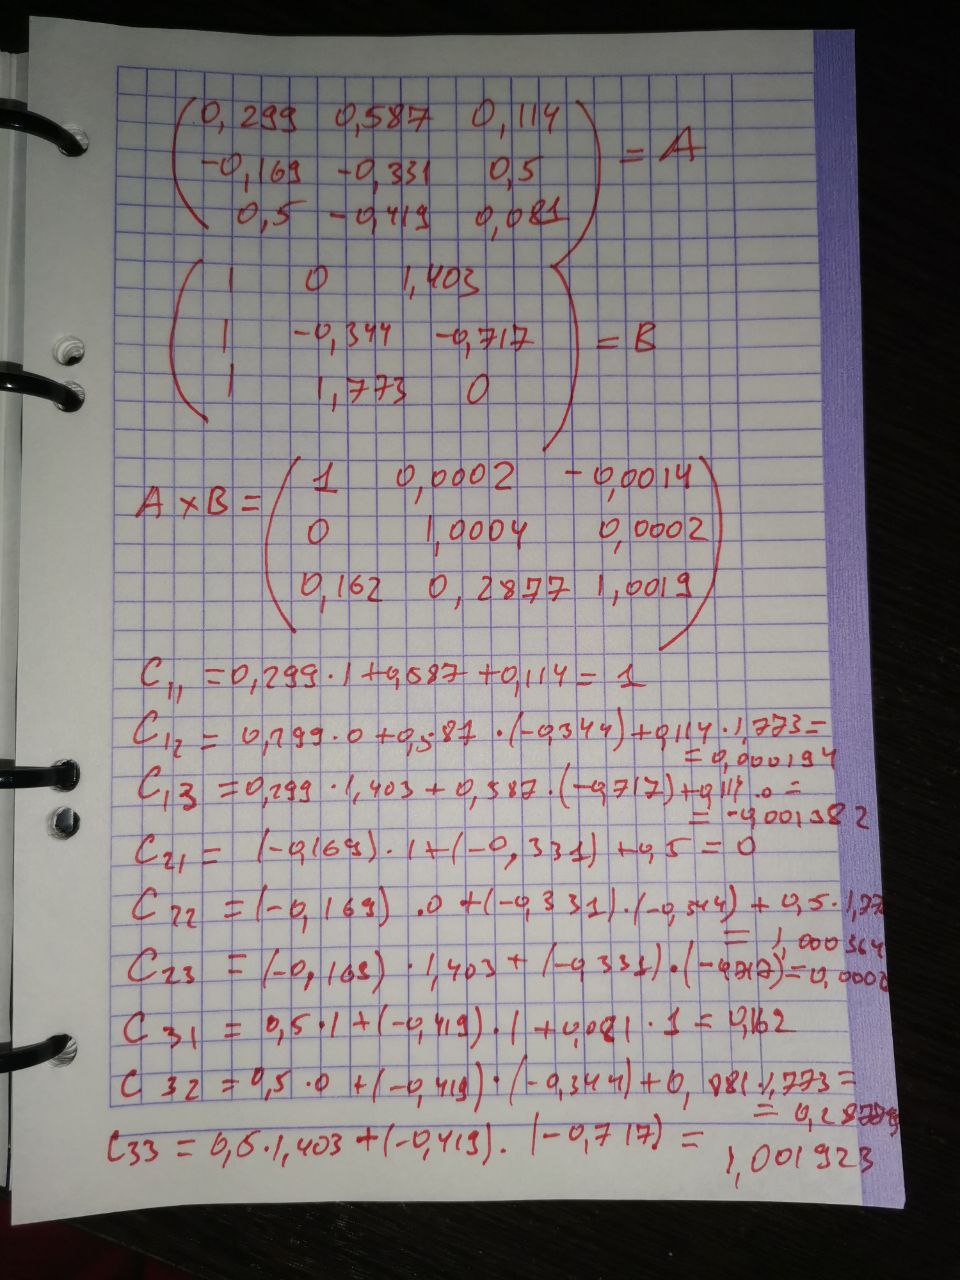 0,299 0,587 0,114
-0,169 -0,331 0,5 = A
0,5 -0,419 0,081
1 0 1,403
1 -0,344 -0,717 = B
1 1,773 0
1 0,0002 -0,0014
A × B = 0 1,0004 0,0002
0,162 0,2877 1,0019
C11 = 0,299·1 + 0,587 + 0,114 = 1
C12 = 0,299·0 + 0,587·(-0,344) + 0,114·1,773 =
= 0,000194
C13 = 0,299·1,403 + 0,587·(-0,717) + 0,114·0 =
= -0,001382
C21 = (-0,169)·1 + (-0,331) + 0,5 = 0
C22 = (-0,169)·0 + (-0,331)·(-0,344) + 0,5·1,77
= 1,000364
C23 = (-0,169)·1,403 + (-0,331)·(-0,717) = 0,0002
C31 = 0,5·1 + (-0,419)·1 + 0,081·1 = 0,162
C32 = 0,5·0 + (-0,419)·(-0,344) + 0,081·1,773 =
=
C33 = 0,5·1,403 + (-0,419)·(-0,717) =
1,001923